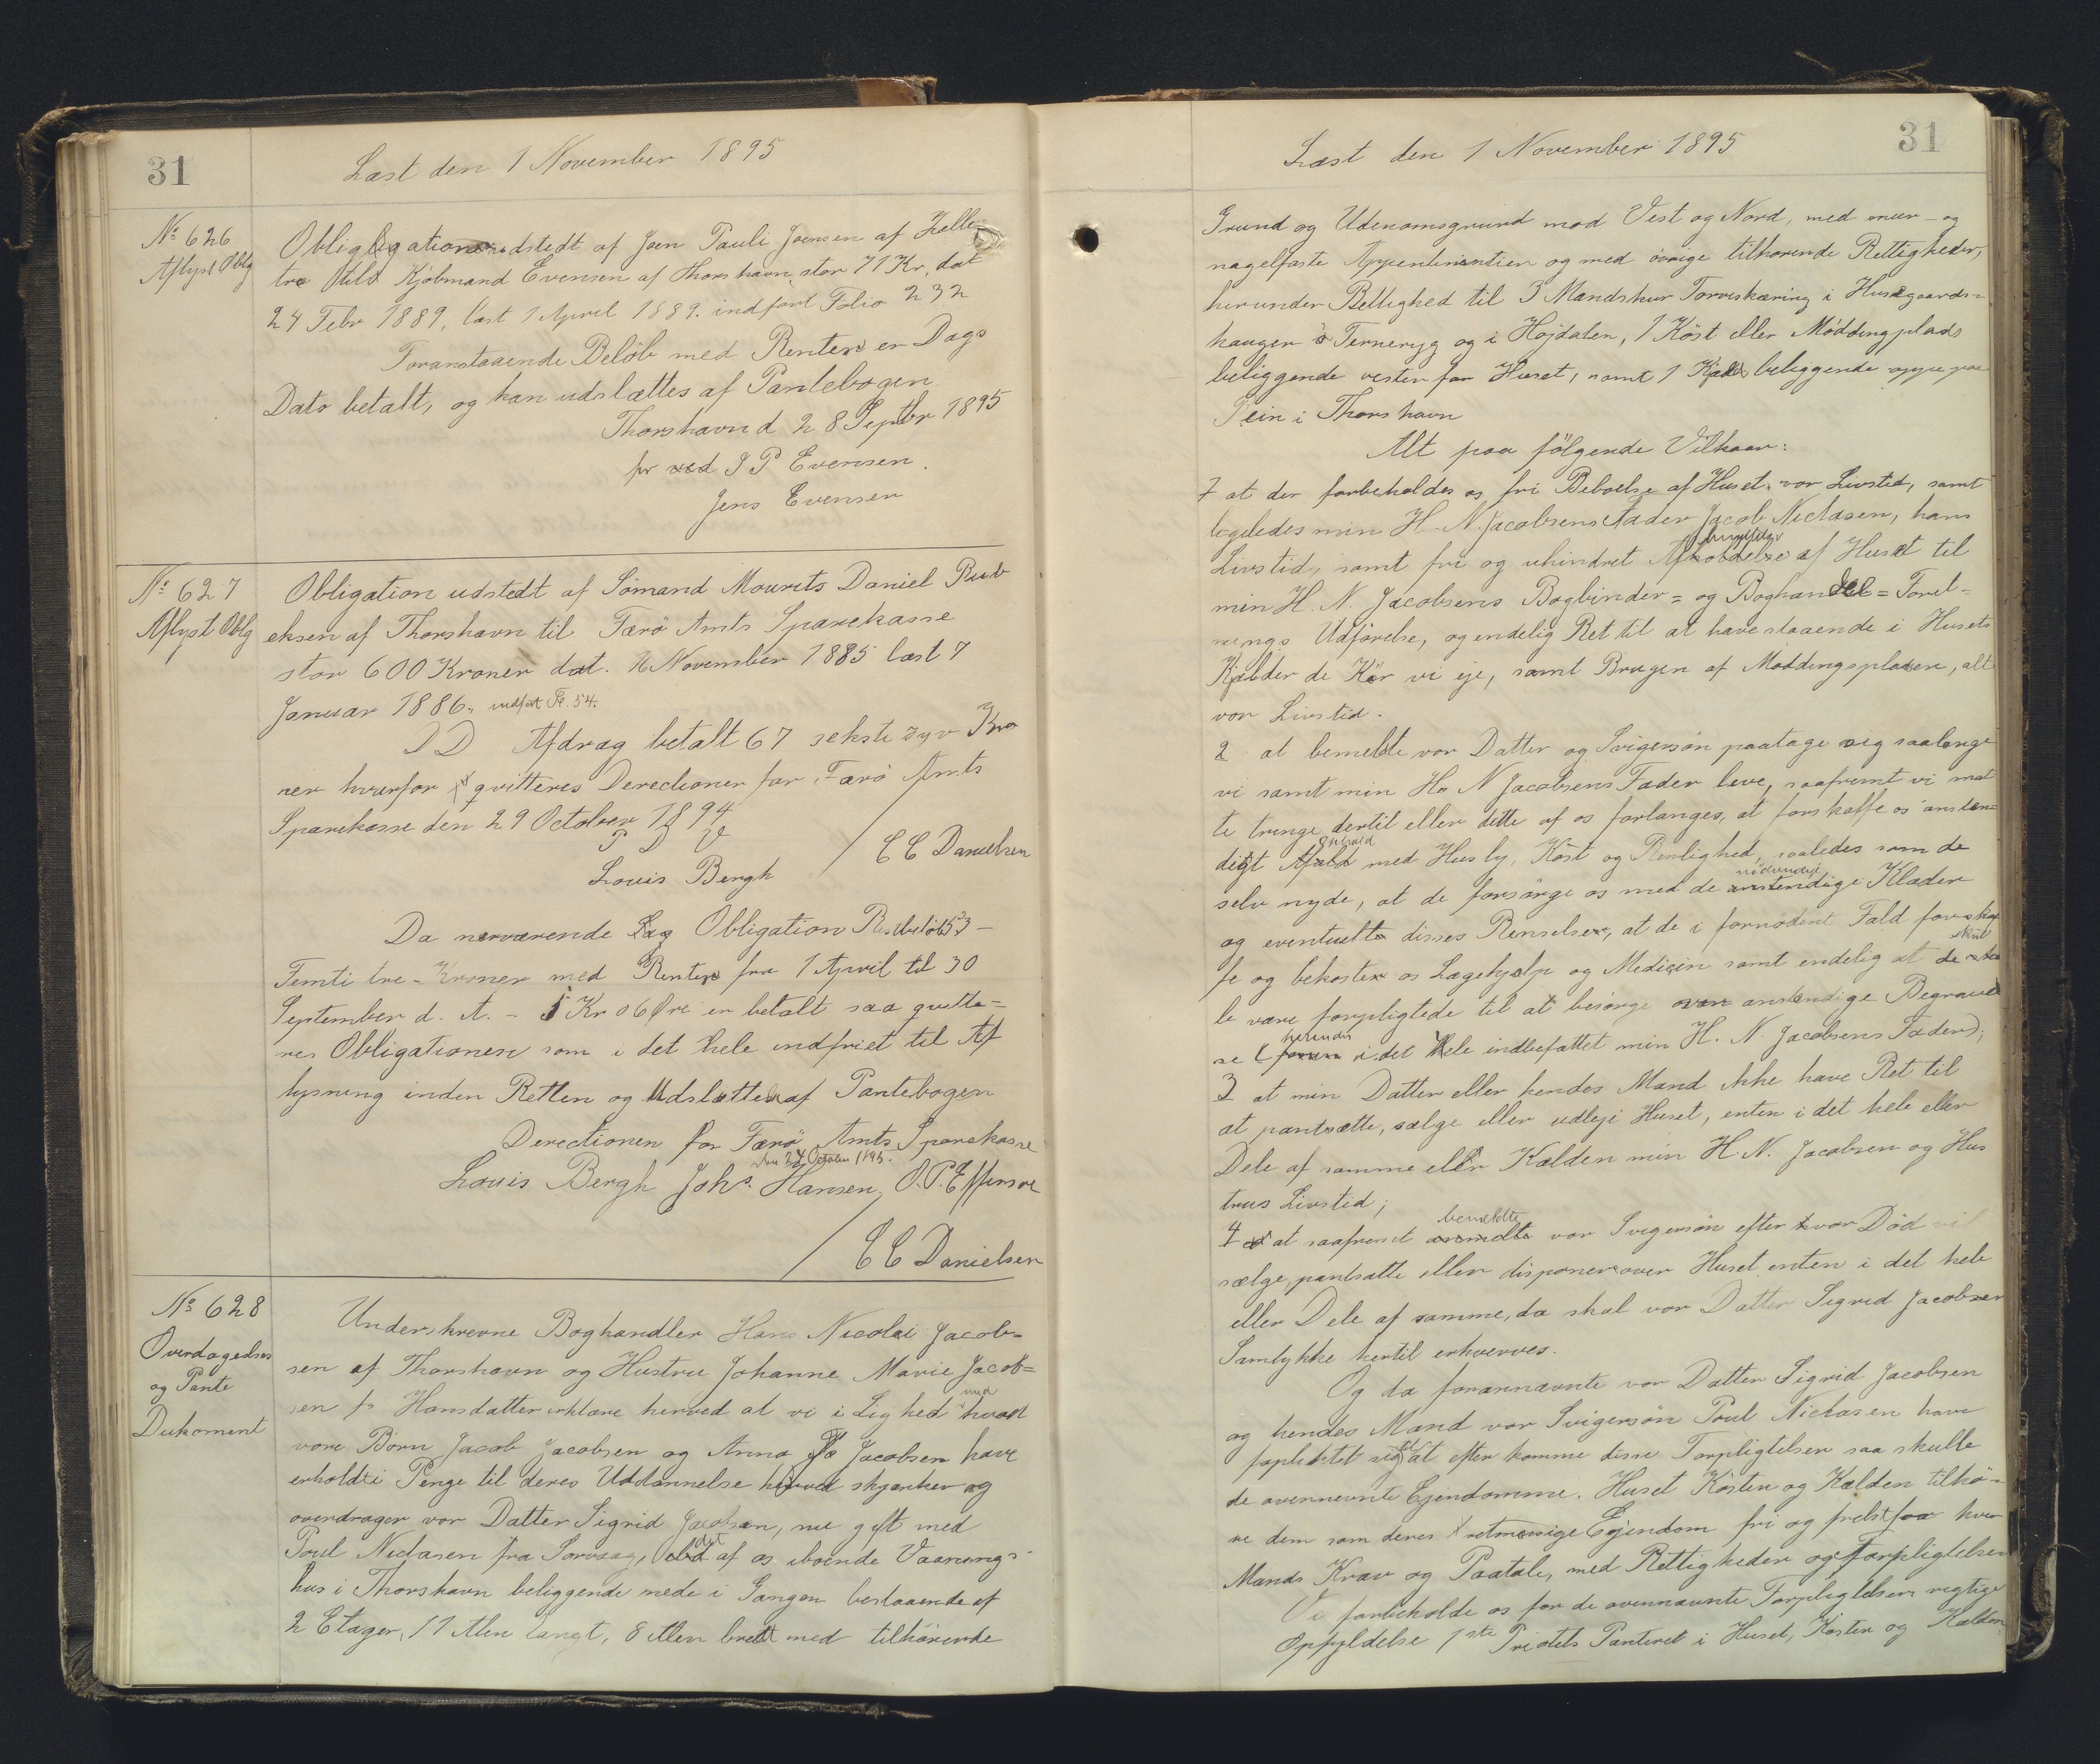 31
Læst den 1 November 1895
No 626
Aflyst Oblg
Obligligation udstedt af Joen Pauli Joensen af Felle-
tre til Kjöbmand Evensen af Thorshavn stor 71 Kr, dat
24 Febr 1889, læst 1 April 1889. indfört Folio 232
Foranstaaende Belöb med Renter er Dags
Dato betalt, og kan udslættes af Pantebogen
Thorshavn d 28 Septbr 1895
for J P Evensen.
Jens Evensen
No 627
Aflyst Oblg
Obligation udstedt af Sömand Mourits Daniel Rub
eksen af Thorshavn til Færö Amts Sparekasse
stor 600 Kroner dat. November 1885 læst 7
Januar 1886. indfört Fo. 54.
D D Afdrag betalt 67 sekste syv Kro
ner hvorfor qvitteres Derectionen for Færö Amts
Sparekasse den 29 October 1894
P D V
Louis Bergh / C C Danielsen
Da nærværende Obligation Restbelöb 53 -
Femti tre - Kroner med Renter fra 1 April til 30
September d. A. - 1 Kr 06 Øre er betalt saa qvitte-
res Obligationen som i det hele indfriet til Af
lysning inden Retten og Udslættelse af Pantebogen
Derectionen for Færö Amts Sparekasse
den 24 October 1895.
Louis Bergh Johs. Hansen, O. P. Effersøe
/ C C Danielsen
No 628
Overdagelses
og Pante
Dukoment
Underskrevne Boghandler Hans Nicolai Jacob-
sen af Thorshavn og Hustru Johanne Marie Jacob=
sen f. Hansdatter erklære herved at vi i Lighed med hvad
vore Börn Jacob Jacobsen og Anna Jacobsen have
erholdt i Penge til deres Uddannelse herved skjænker og
overdrager vor Datter Sigrid Jacobsen, nu gift med
Poul Niclasen fra Sorvaag, det af os iboende Vaanings-
hus i Thorshavn beliggende nede i Gangen bestaaende af
2 Etager, 11 Alen langt, 8 Alen bredt med tilhörende
31
Læst den 1 November 1895
Grund og Udenomsgrund mod Vest og Nord, med muur- og
nagelfaste Appertinentien og med övrige tilhörende Rettigheder,
herunder Rettighed til 3 Mandskur Torveskæring i Husegaards-
haugen Terneryg og i Højdalen, 1 Köst eller Möddingplads
beliggende vesten for Huset, samt 1 beliggende oppe paa
Rein i Thorshavn
Alt paa fölgende Vilkaar:
1 at der forbeholdes os fri Beboelse af Huset vor Livstid, samt
ligeledes min H. N. Jacobsens Fader Jacob Niclasen, hans
Livstid, samt fri og uhindret Afbenyttelse af Huset til
min H. N. Jacobsens Bogbinder= og Boghandel= Foret-
nings Udförelse, og endelig Ret til at have staaende i Husets
Kjælder de Kör vi eje, samt Brugen af Möddingspladsen, alt
vor Livstid.
2 at bemeldte vor Datter og Svigersön paatage sig saalænge
vi samt min H. N Jacobsens Fader leve, saafremt vi maat
te trænge dertil eller dette af os forlanges, at forskaffe os anstæn-
digt Ophold med Husly, Kost og Renlighed, saaledes som de
selv nyde, at de forsörge os med de nödvendige Klæder
og eventuelt disses Renselse, at de i fornødent Fald forskaf
fe og bekoste os Lægehjælp og Medicin samt endelig at de skul
le være forpligtede til at besörge vor anstændige Begravel
se (herunder i det Hele indbefattet min H. N Jacobsens Fader);
3 at min Datter eller hendes Mand ikke have Ret til
at pantsætte, sælge eller udleje Huset, enten i det hele eller
Dele af samme eller Kælden min H. N. Jacobsen og Hus
trus Livstid;
4 at saafremt bemeldte vor Svigersön efter vor Död vil
sælge, pantsætte eller disponer over Huset enten i det hele
eller Dele af samme, da skal vor Datter Sigrid Jacobsen
Samtykke hertil erhverves.
Og da forannævnte vor Datter Sigrid Jacobsen
og hendes Mand vor Svigersön Poul Niclasen have
fopliktet sig til at efter komme disse Forpligtelser saa skulle
de ovennevnte Ejendomme. Huset Kösten og Kælden tilhö-
re dem som deres retmæssige Ejendom fri og frelst for hver
Mands Krav og Paatale, med Rettigheder og Forpligtelser
Vi forbeholde os for de ovennævnte Forpligtelsers regtige
Opfyldelse 1ste Priotets Panteret i Huset, Kösten og Kælden